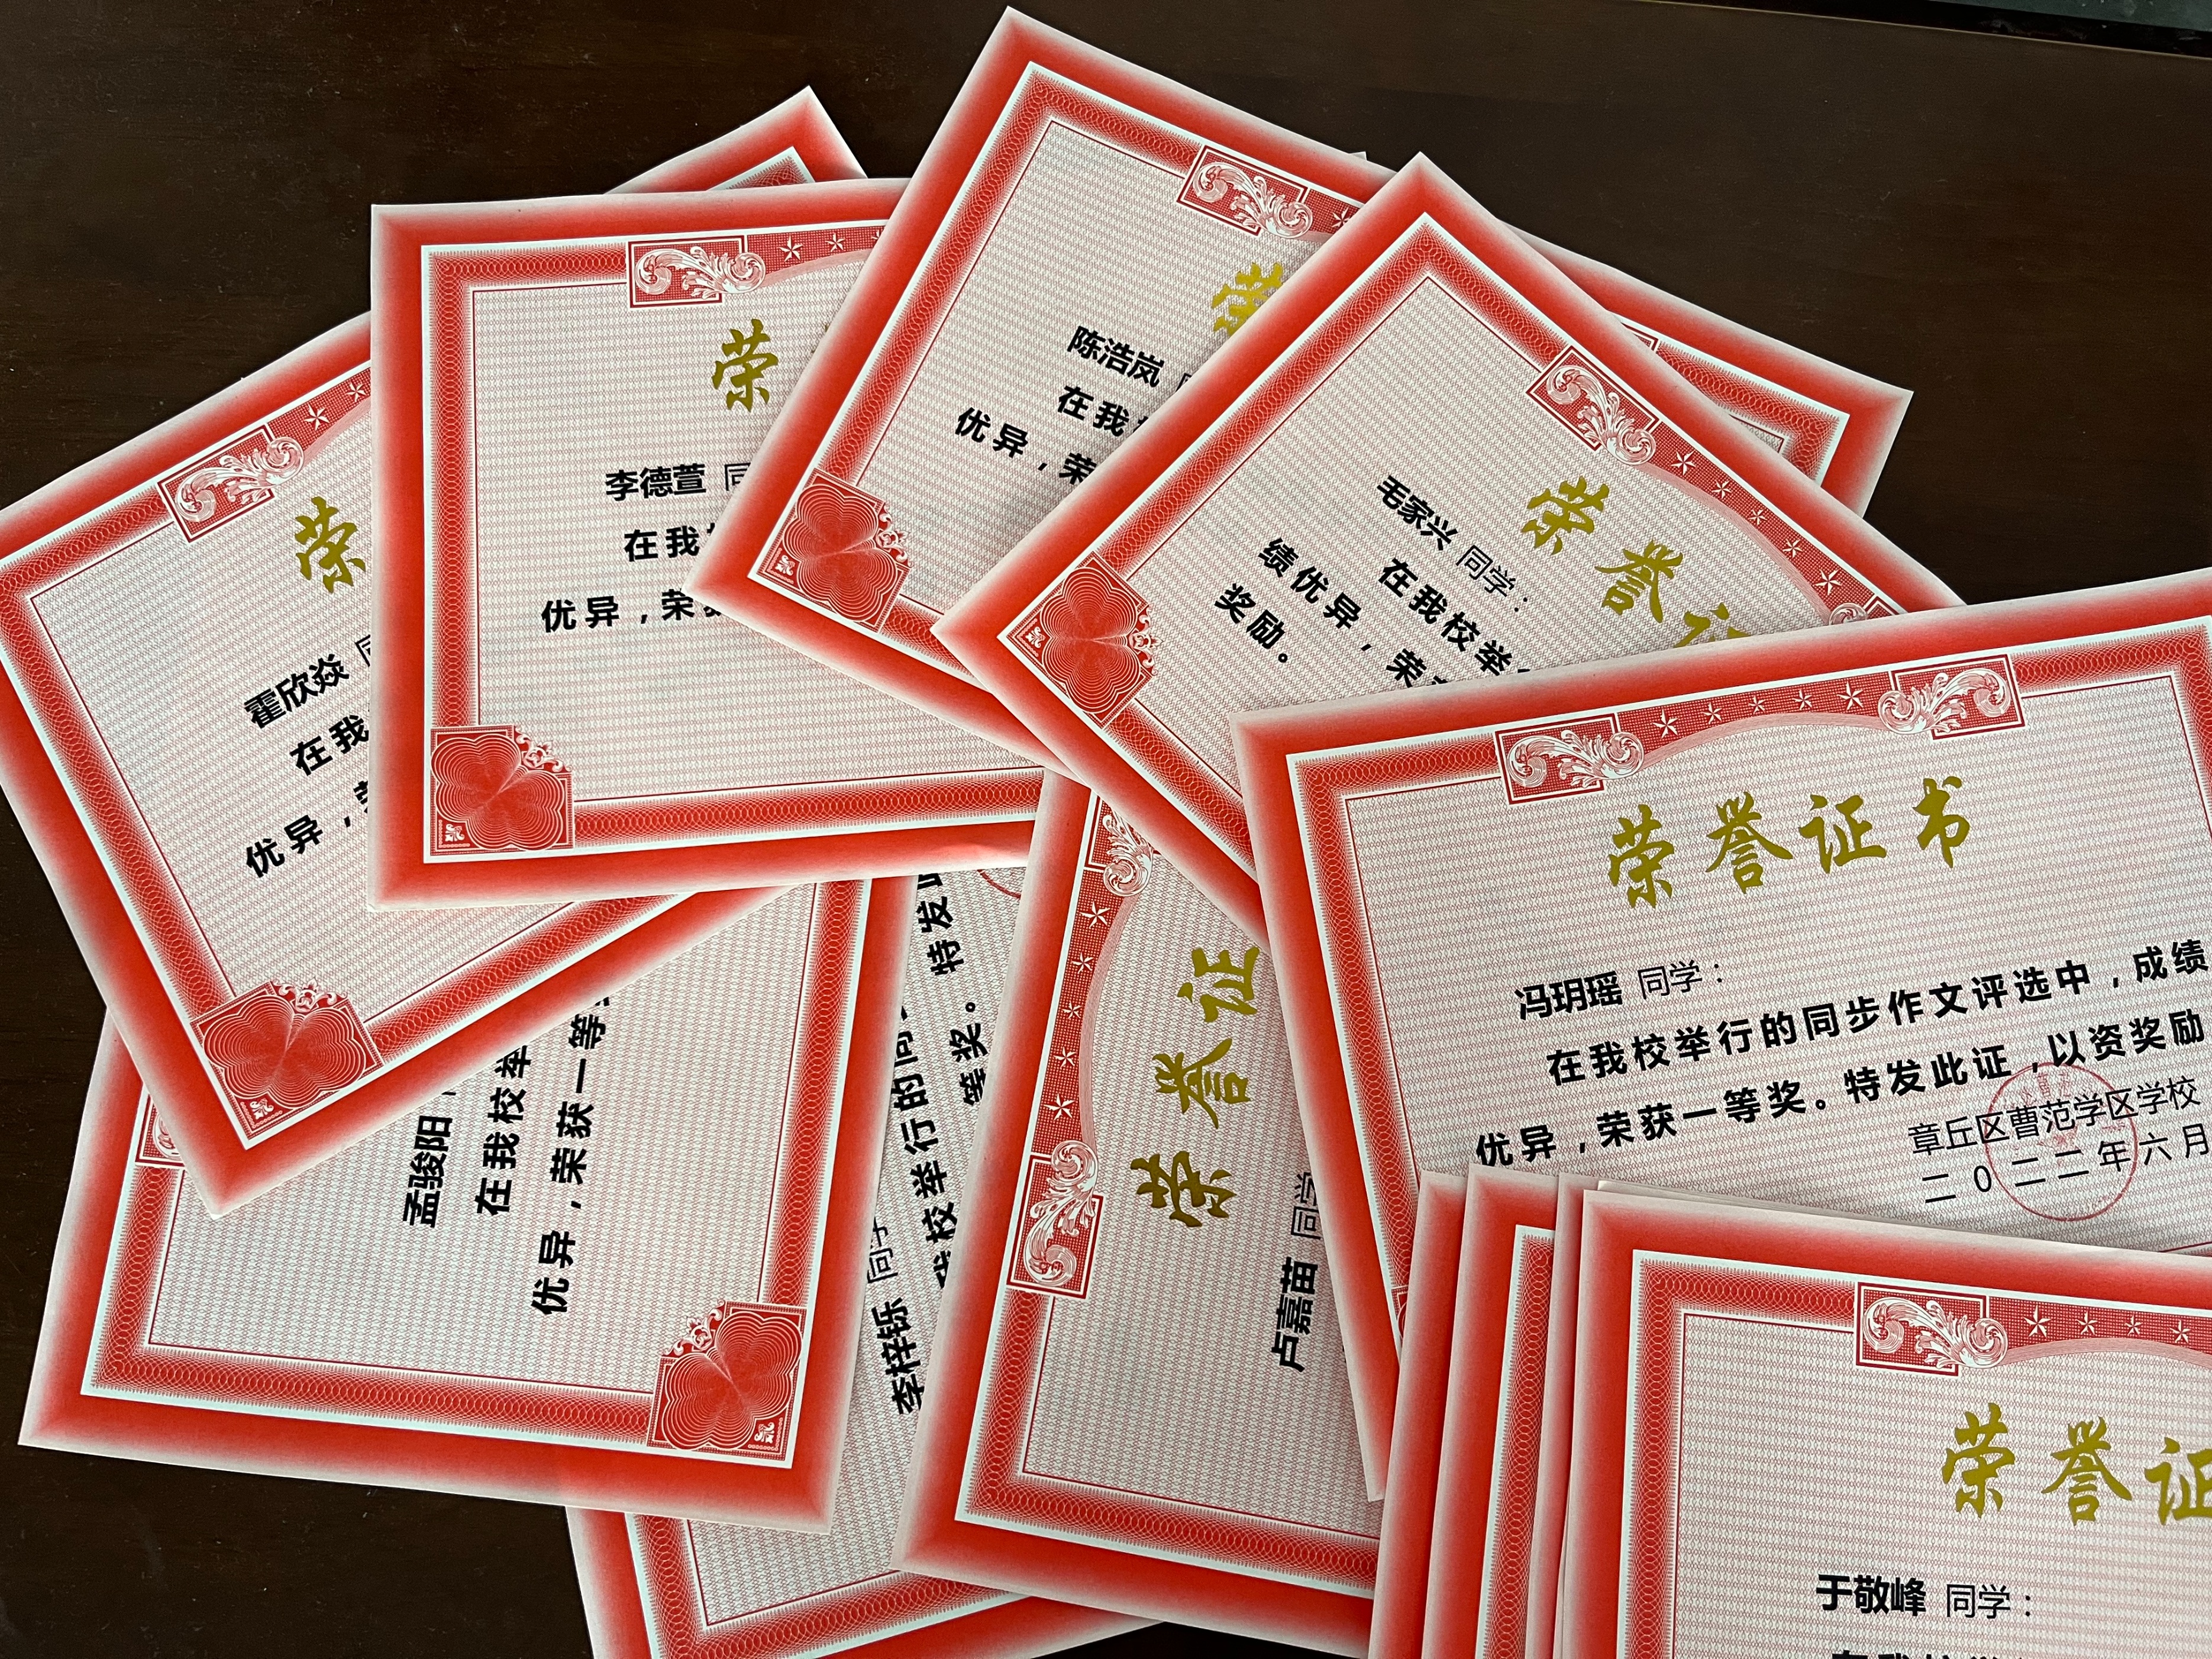 荣
霍欣焱
在我
优异，
荣
李德萱 同
在我
优异，荣
陈浩岚
在我
优异，荣
荣誉证
毛家兴 同学：
在我校举
绩优异，荣
奖励。
荣誉证书
冯玥瑶 同学：
在我校举行的同步作文评选中，成绩
优异，荣获一等奖。特发此证，以资奖励
章丘区曹范学区学校
二0二二年六月
孟骏阳
在我校举
优异，荣获一等
李梓铄 同学
我校举行的同
等奖。特发此
荣誉证
卢嘉苗 同学
荣誉证
于敬峰 同学：